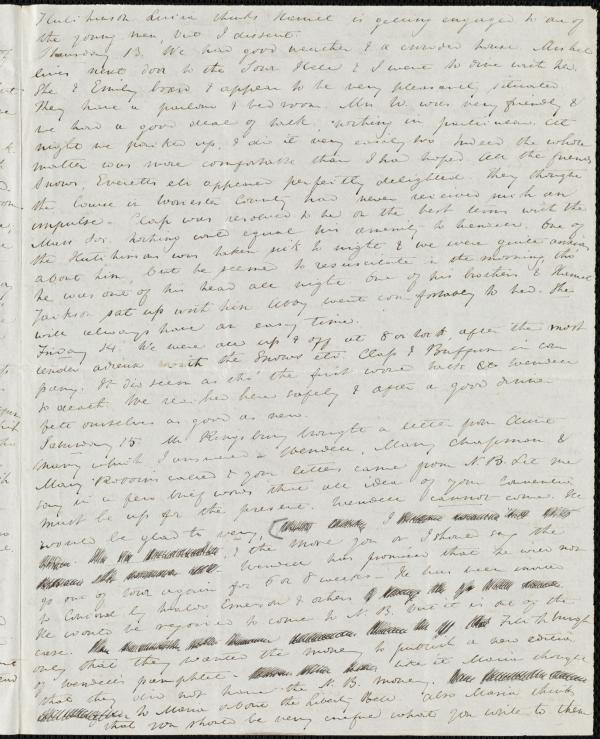 Hutchinson Louisa thinks Hannah is getting engaged to one of
the young men, but I dissent.
Thursday 13. We had good weather & a crowded house. Mrs
lives next door to the Town Hall & I went to dine with her
She & Emily board & appear to be very pleasantly situated
They have a parlour & bed room. Mrs W. was very friendly &
we had a good deal of talk, nothing in particular. At
night we packed up, I did it very easily too. Indeed the whole
matter was more comfortable than I had hoped. All the friends
Snows, Everetts etc appeared perfectly delighted. They thought
the cause in Worcester County had never received such an
impulse. Clap was resolved to be on the best terms with the
Mass Soc. Nothing could equal his amenity to Wendell. One of
the Hutchinsons was taken sick to night & we were quite anxious
about him, but he seemed to resuscitate in the morning tho'
he was out of his head all night. One of his brothers &
Jackson sat up with him Abby went comfortably to bed. She
will always have an easy time.
Friday 14. We were all up & off at 8 or so, after the most
tender adieux with the Snows etc. Clap & Buffum in com
pany. It did seem as tho' the first would talk Wendell
to death. We reached here safely & after a good dinner
felt ourselves as good as new.
Saturday 15 Mr Kingsbury brought a letter from Anne
which I answered. Wendell, Mary Chapman &
Mary Robbins called & your letters came from N. B. Let me
say in a few brief words that all idea of your Convention
must be up for the present. Wendell cannot come. He
would be glad to very, I
, I the more you or, I should say the
Wendell has promised that he would not
go one of your again for 6 or 8 weeks. He has been invited
to Concord by Waldo Emerson & others
He would be rejoiced to come to N. B. but it is out of the
case. Fitchburgh
only that they wanted the money to publish a new edition
of Wendell's pamphlet. like it. Maria thought
that they did not have the N. B. money.
to Maria about the Liberty Bell. Also Maria thinks
that you should be very careful what you write to them